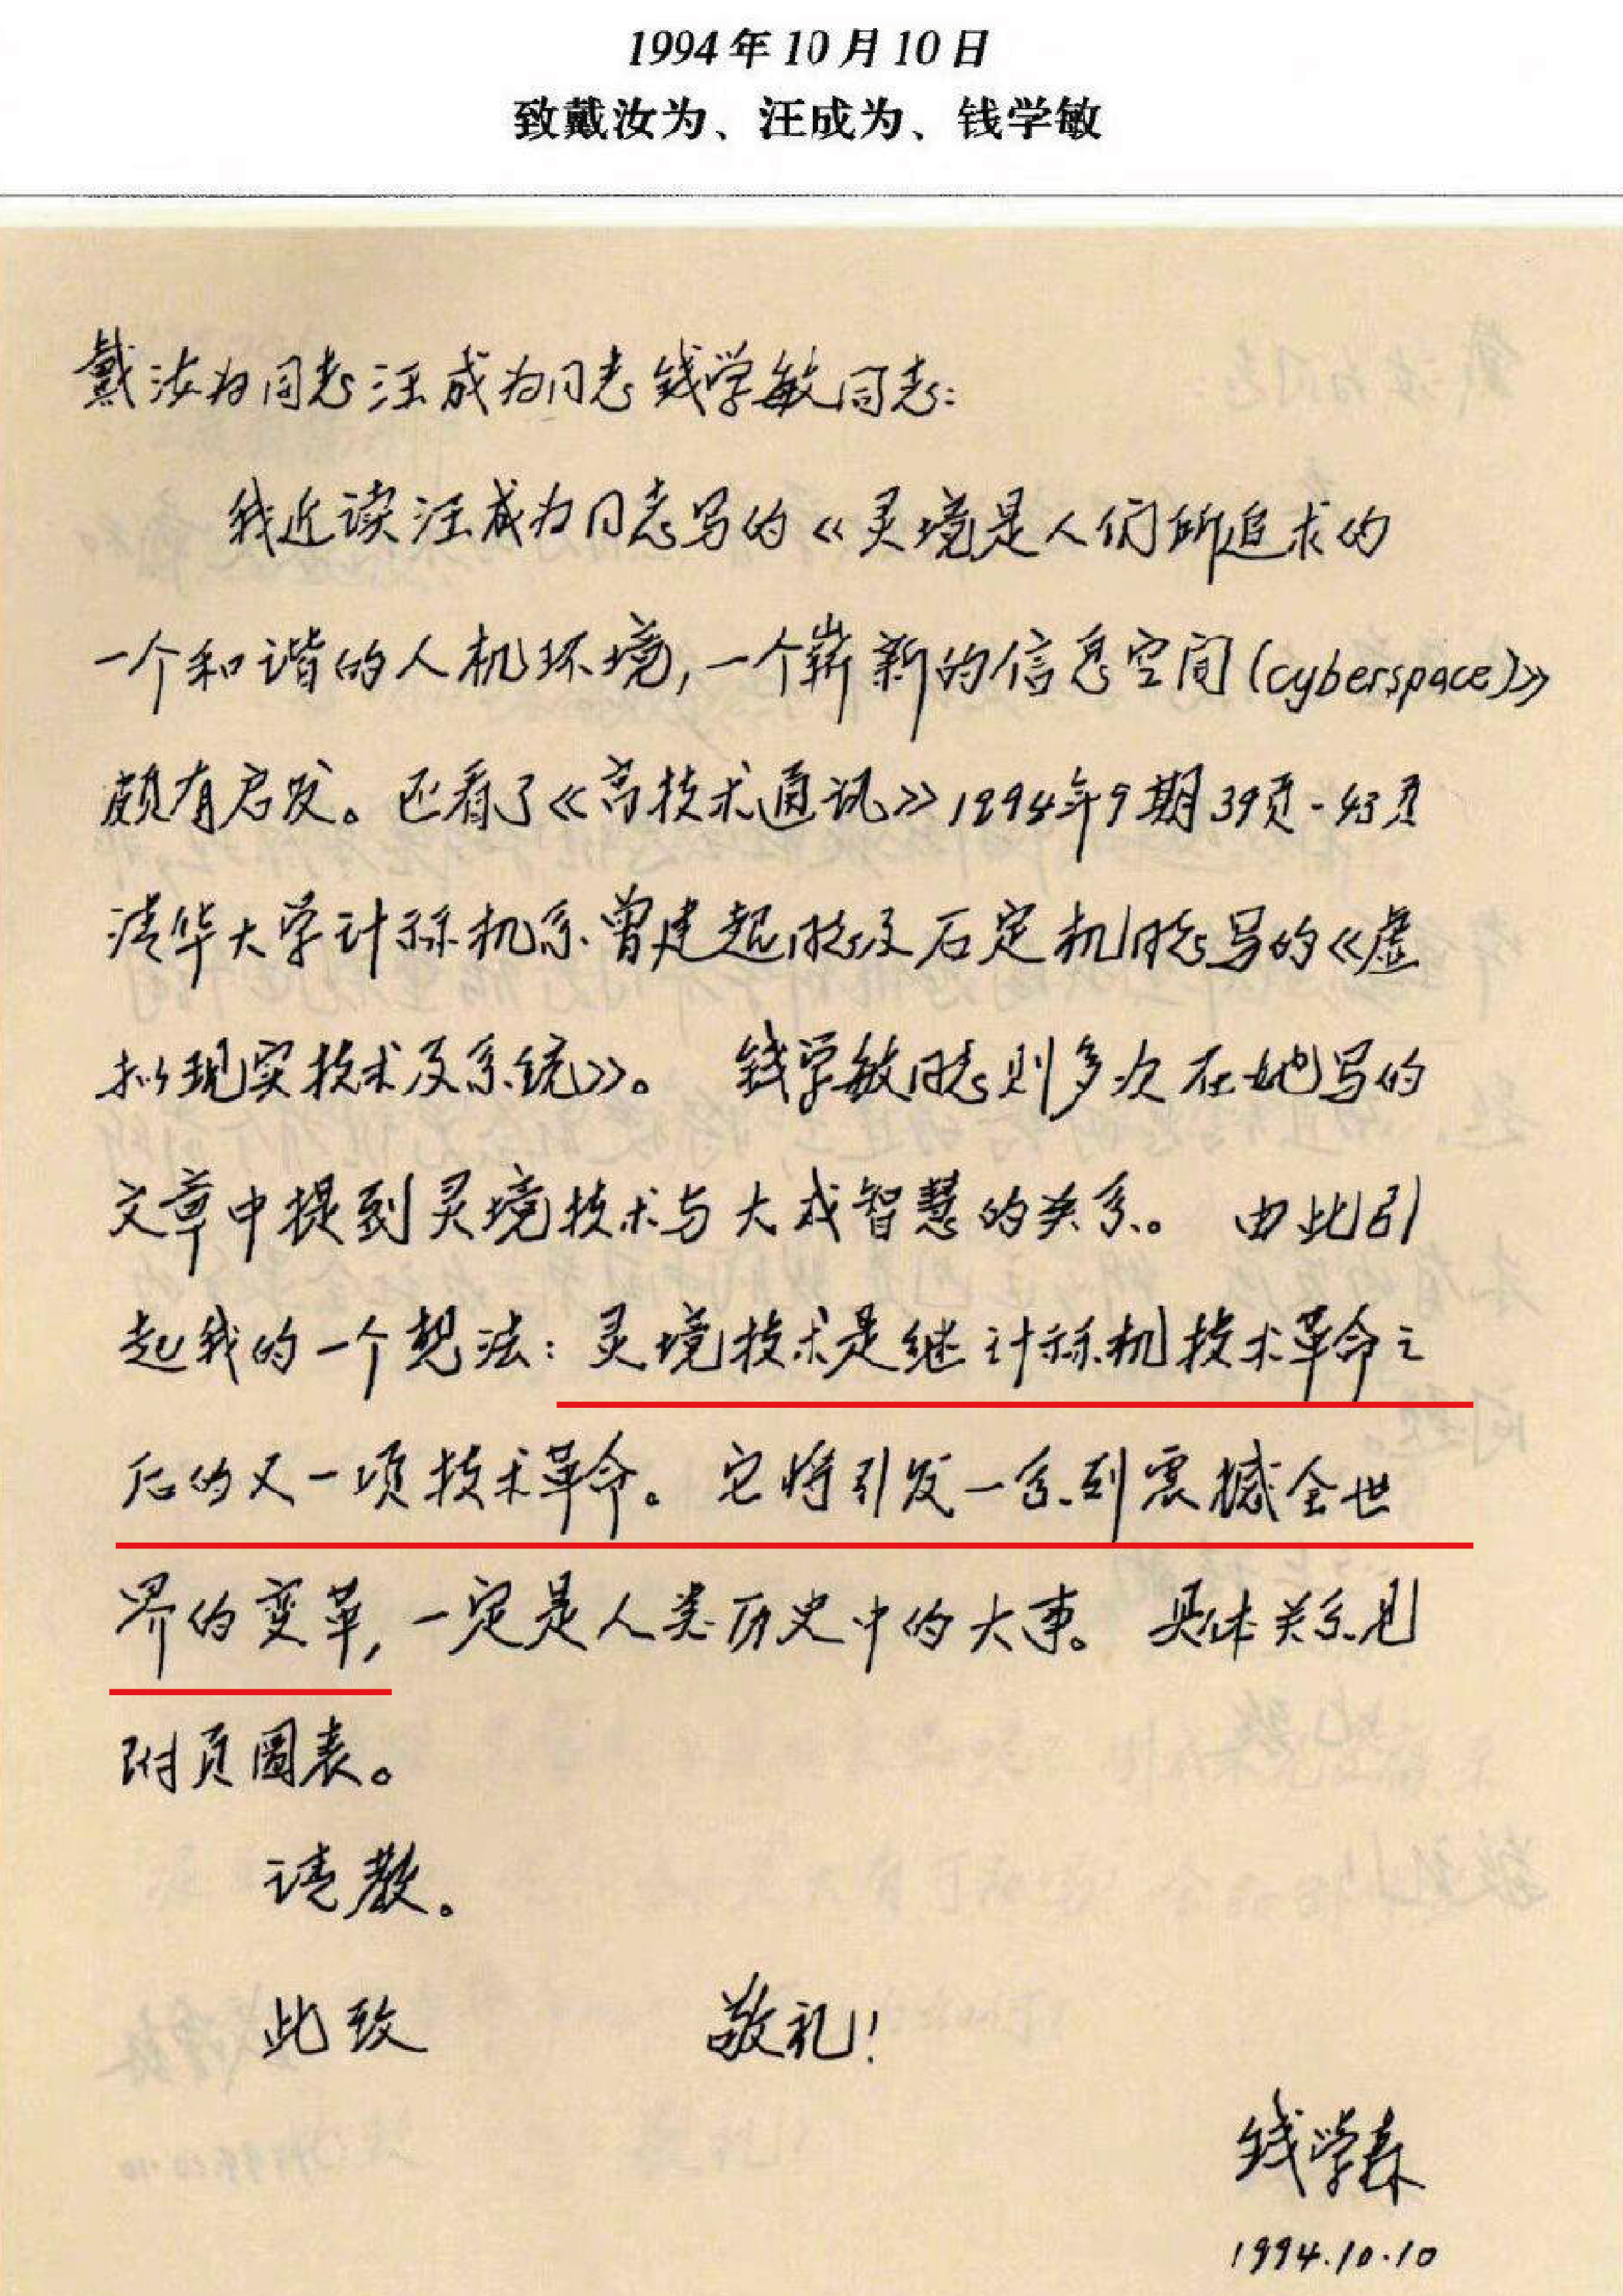 1994年10月10日
致戴汝为、汪成为、钱学敏
戴汝为同志汪成为同志钱学敏同志:
我近读汪成为同志写的《灵境是人们所追求的
一个和谐的人机环境,一个崭新的信息空间(cyberspace)》
颇有启发。还看了《高技术通讯》1994年9期39页-43页
清华大学计算机系曾建超同志及石定机同志写的《虚
拟现实技术及系统》。 钱学敏同志则多次在她写的
文章中提到灵境技术与大成智慧的关系。 由此引
起我的一个想法:灵境技术是继计算机技术革命之
后的又一项技术革命。它将引发一系列震撼全世
界的变革,一定是人类历史中的大事。具体关系见
附页圖表。
请教。
此致 敬礼!
钱学森
1994.10.10